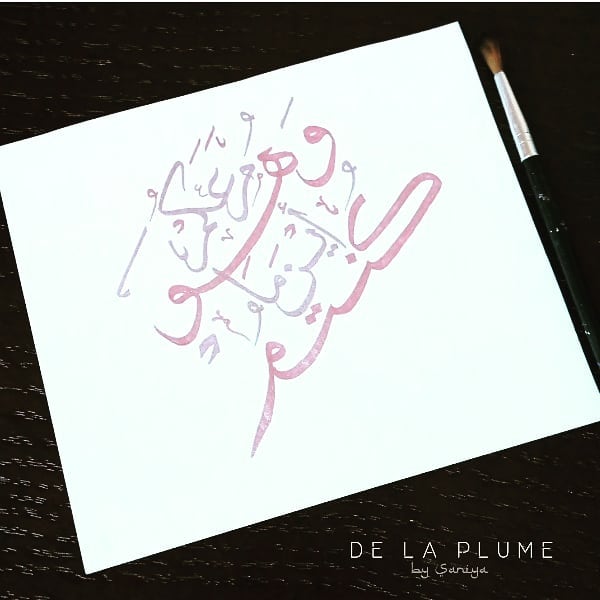 وَهُوَ مَعَكُمْ أَيْنَ مَا كُنْتُمْ
DE LA PLUME
by Saniya